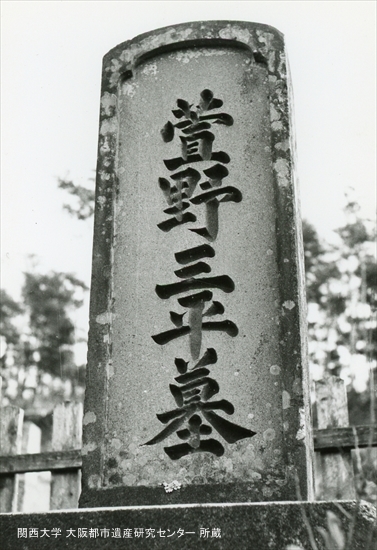 萱野三平墓
関西大学 大阪都市遺産研究センター 所蔵